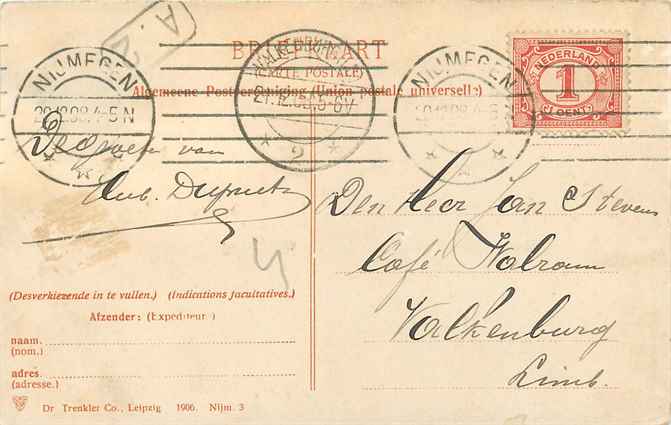 A. 2
BRIEFKAART
(CARTE POSTALE)
Algemeene Postvereeniging (Union postale universelle)
NIJMEGEN
4-5 N
VALKENBURG
5-6V
2
NIJMEGEN
NEDERLAND
1
CENT
De groeten van
Hub.
Den Heer Jan Stevens
Café Walram
Valkenburg
Limb.
4
(Desverkiezende in te vullen.) (Indications facultatives.)
Afzender: (Expéditeur:)
naam.
(nom.)
adres.
(adresse.)
Dr Trenkler Co., Leipzig 1906. Nijm. 3